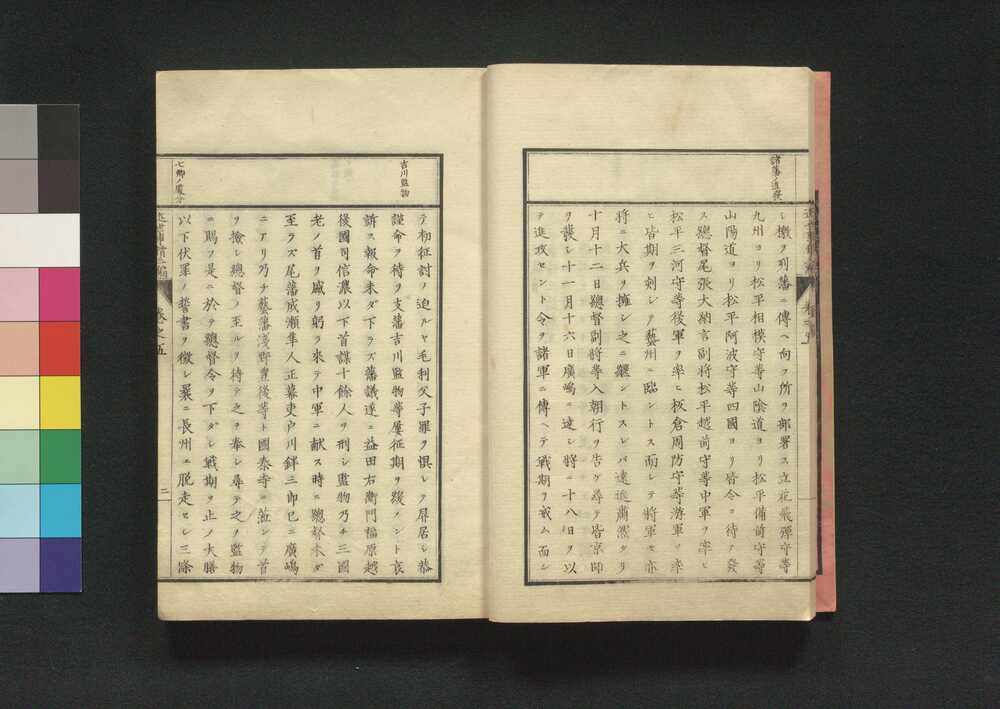 諸藩ノ進發
シ檄ヲ列藩ニ傳ヘ向フ所ヲ部署ス立花飛彈守等
九州ヨリ松平相模守等山陰道ヨリ松平備前守等
山陽道ヨリ松平阿波守等四國ヨリ皆令ヲ待テ發
ス總督尾張大納言副將松平越前守等中軍ヲ率ヒ
松平三河守等後軍ヲ率ヒ板倉周防守等游軍ヲ率
ヒ皆期ヲ刻シテ藝州ニ臨ントス而シテ將軍モ亦
將ニ大兵ヲ擁シ之ニ繼ントスレバ遠近肅然タリ
十月十二日總督副將等入朝行ヲ告グ尋テ皆京師
ヲ發シ十一月十六日廣嶋ニ達シ將ニ十八日ヲ以
テ進攻セント令ヲ諸軍ニ傳ヘテ戰期ヲ戒ム而シ
吉川監物
テ初征討ヲ迫ルヤ毛利父子罪ヲ惧レテ屏居シ恭
謹命ヲ待ツ支藩吉川監物等屢征期ヲ緩メント哀
訴ス報命未ダ下ラズ藩議遂ニ益田右衞門福原越
後國司信濃以下首謀十餘人ヲ刑シ監物乃チ三國
老ノ首ヲ盛リ躬ヲ來テ中軍ニ献ス時ニ總督未ダ
至ラズ尾藩成瀬隼人正幕吏戸川鉡三郎已ニ廣嶋
ニアリ乃チ藝藩淺野豊後等ト國泰寺ニ莅ンデ首
ヲ撿シ總督ノ至ルヲ待テ之ヲ奉シ尋テ之ヲ監物
ニ賜フ是ニ於テ總督令ヲ下ダシ戰期ヲ止ノ大膳
以下伏罪ノ誓書ヲ徴シ曩ニ長州ニ脱走セシ三條
七卿ノ處分
卷之五
二